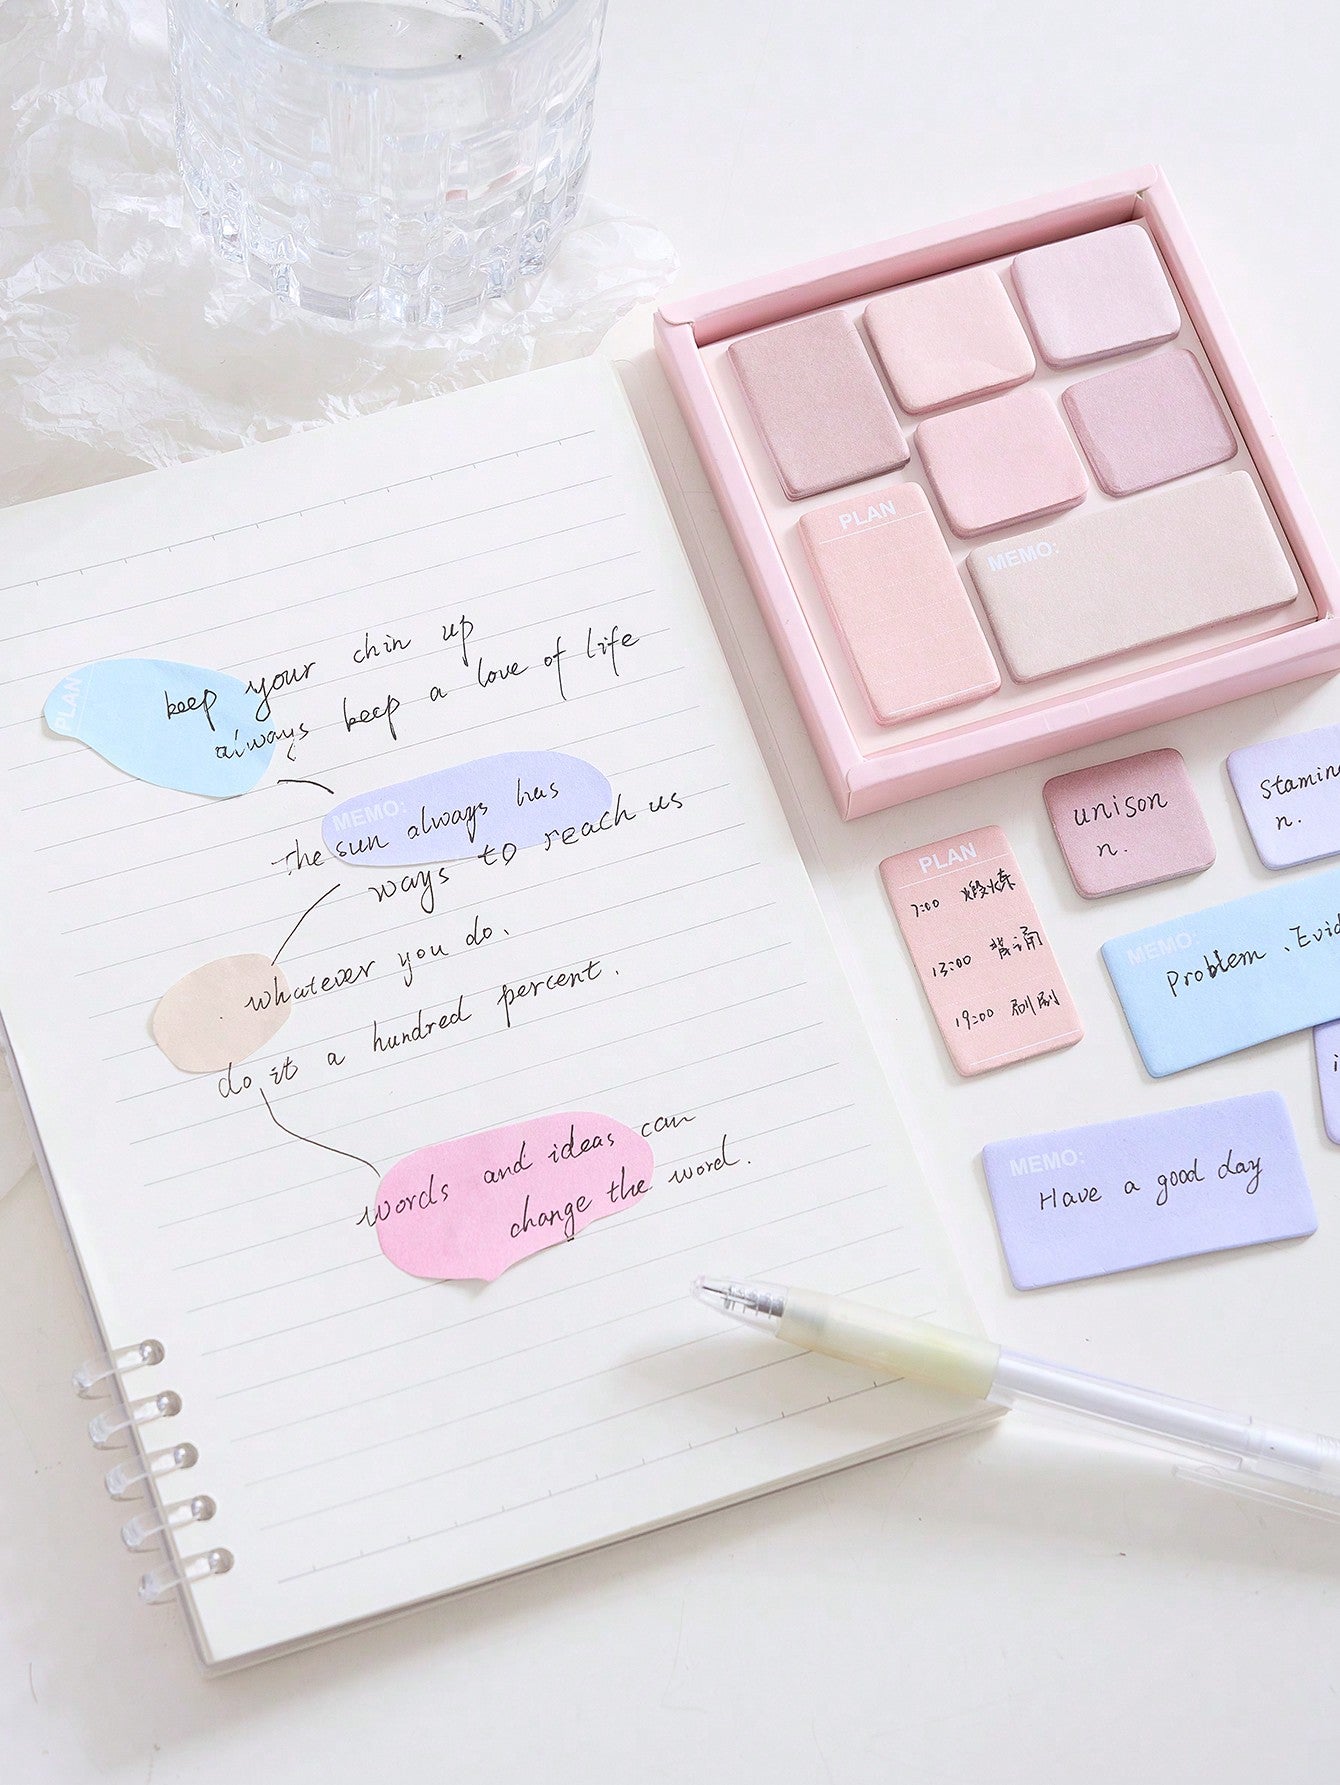 PLAN
keep your chin up
always keep a love of life
MEMO:
the sun always has
ways to reach us
whatever you do.
do it a hundred percent.
words and ideas can
change the word.
PLAN
MEMO:
unison
n.
Stamin
n.
PLAN
7:00 煅炼
13:00 背诵
19:00 刷刷
MEMO:
Problem、Evid
i
MEMO:
Have a good day